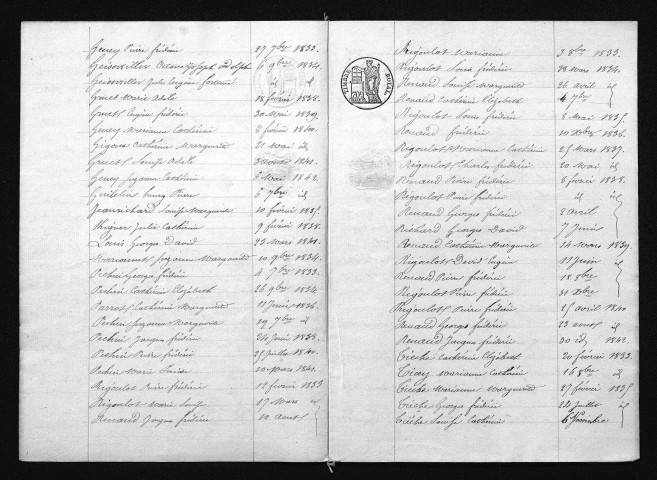 Gency Pierre frédéric 27 7bre 1833.
Geiserviller Octave Joseph Adolph 6 9bre 1834.
Geiserviller Jules Eugène id id
Gruet Marie Adele 18 février 1838.
Gruet Eugène frédéric 30 Mai 1839.
Gency Marianne Catherine 8 février 1840.
Gigon Catherine Marguerite 21 Mai id
Gruet Louise Adele 1841.
Gency Suzanne Catherine 6 Mai 1842.
Pierre 6 7bre id
Jeanrichard Louise Marguerite 10 février 1835.
Julie Catherine 9 février 1838.
Louis George David 23 Mars 1841.
Suzanne Marguerite 10 9bre 1834.
Pechin George frédéric 4 7bre 1833.
Pechin Catherine Elizabeth 26 9bre 1834
Parrot Catherine Marguerite 11 Juin 1836.
Pechin Suzanne Marguerite 29 7bre id
Pechin Jacques frédéric 24 Juin 1838.
Pechin Pierre frédéric 25 Juillet 1840.
Pechin Marie Louise 10 Mars 1841.
Rigoulot Pierre frédéric 12 février 1833
Rigoulot Marie 17 Mars
Renaud Jacques frédéric 10 aout
TIMBRE ROYAL
Rigoulot Marianne 3 8bre 1833.
Rigoulot Louis frédéric 18 Mars 1834.
Renaud Louise Marguerite 26 avril id
Renaud Catherine Elizabeth 4 7bre
Rigoulot Louis frédéric 8 Mai 1835.
Renaud frédéric 10 Xbre 1836.
Rigoulot Marianne Catherine 25 Mars 1837.
Rigoulot Charles frédéric 20 Mai id
Renaud Pierre frédéric 8 février 1838.
Rigoulot Pierre frédéric id
Renaud George frédéric 2 avril
Richard George David 7 Juin
Renaud Catherine Marguerite 14 Mars 1839.
Rigoulot David Eugène 11 Juin id
Renaud Pierre frédéric 18 8bre
Rigoulot Pierre frédéric 31 Xbre
Rigoulot Pierre frédéric 25 avril 1840
Renaud George frédéric 23 aout id
Renaud Jacques frédéric 30 id 1842.
Tieche Catherine Elizabeth 20 février 1833.
Marianne Catherine 16 8bre id
Tieche Marianne Marguerite 27 février 1835.
Tieche George frédéric 22 Juillet id
Tieche Louise Catherine 6